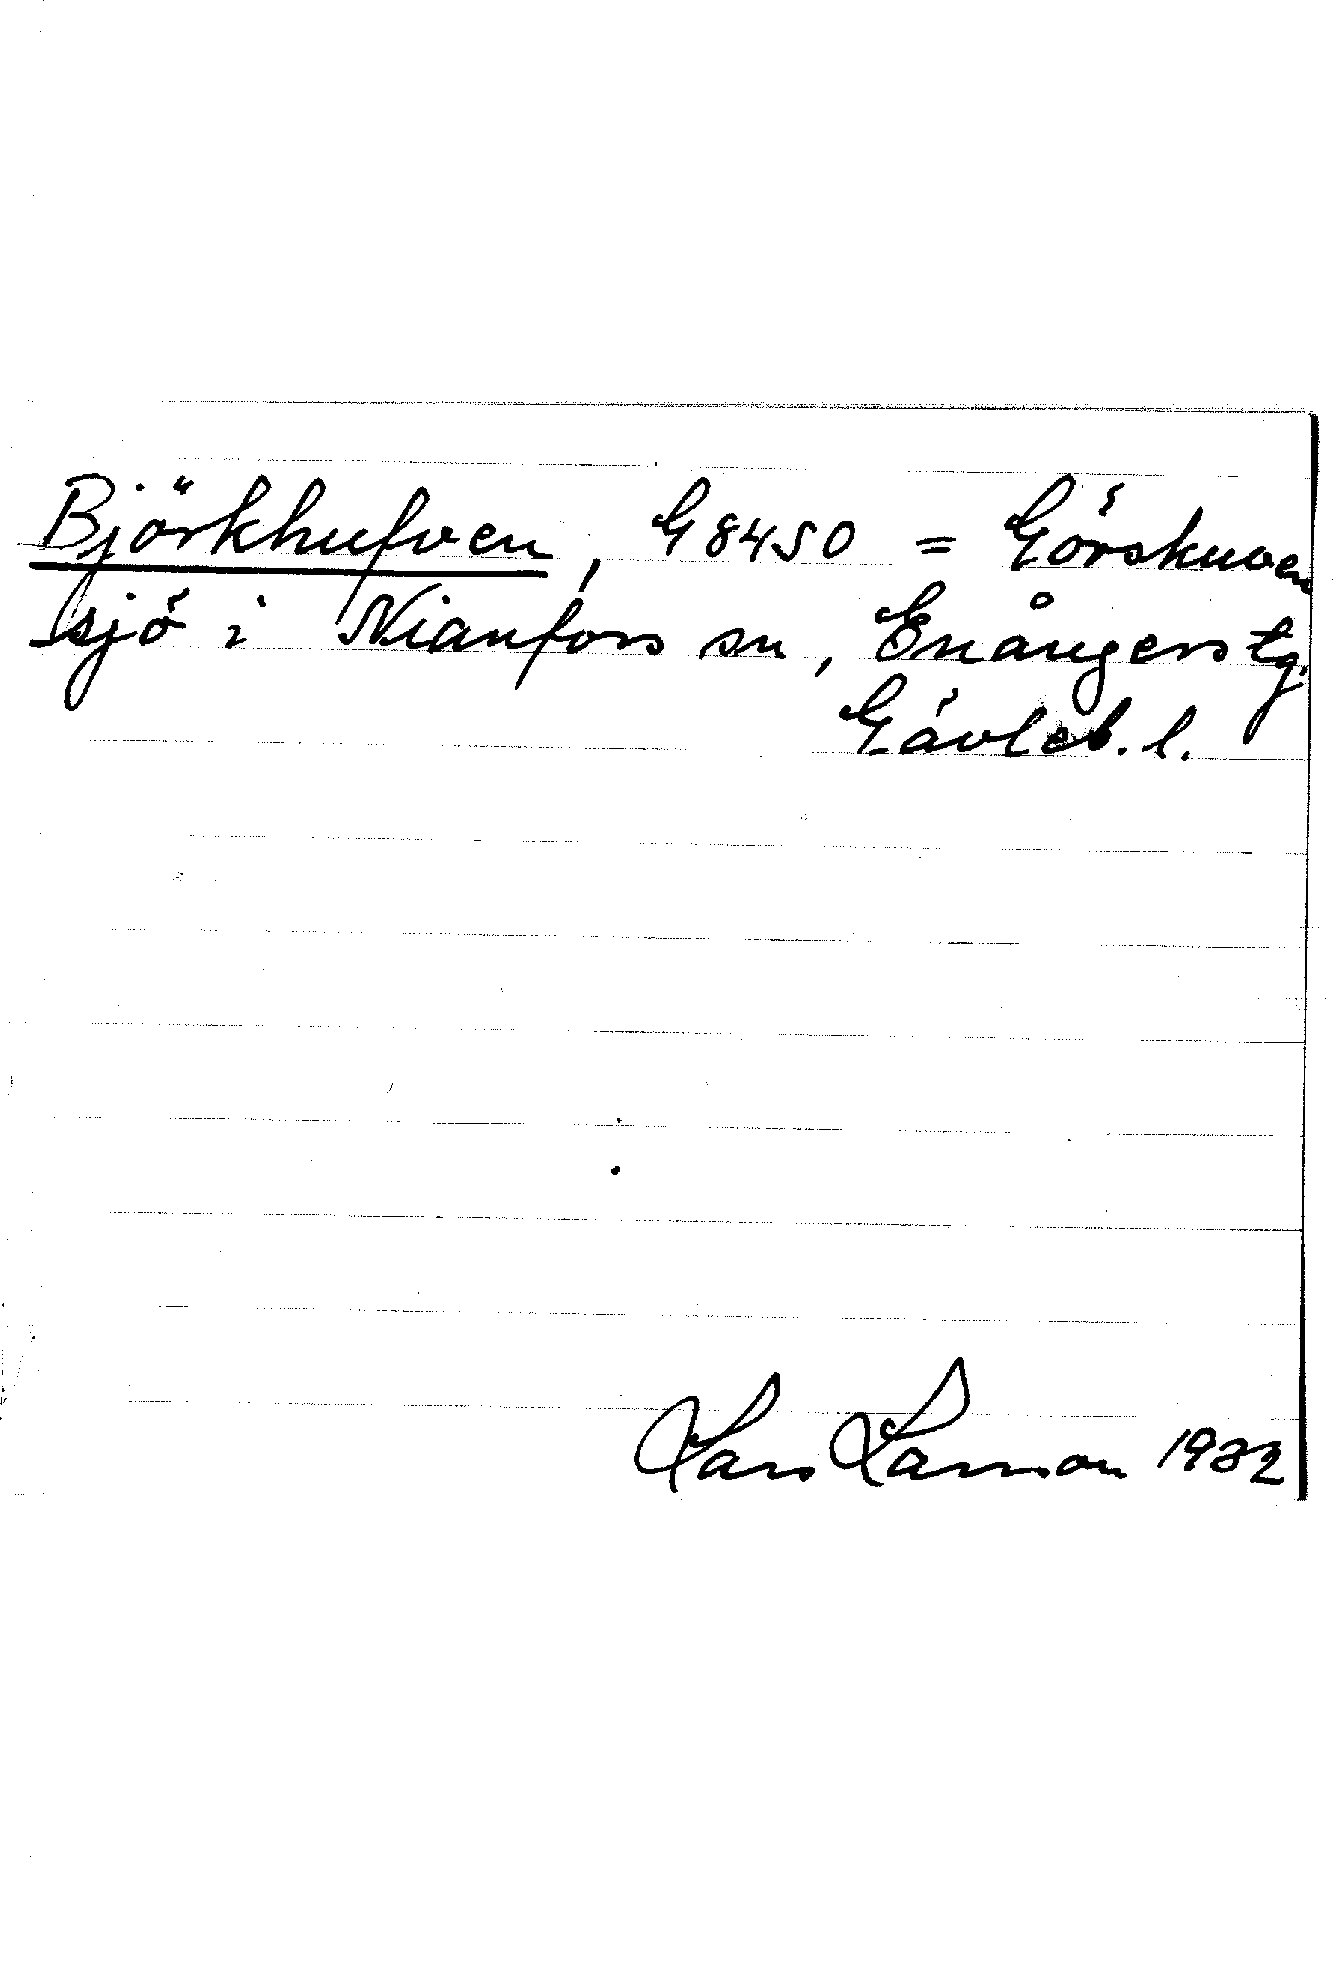 Björkhufven, G8450 = Görskuven
sjö i Nianfors sn, Enångers tg.
Gävleb. l.
Lars Larsson 1932